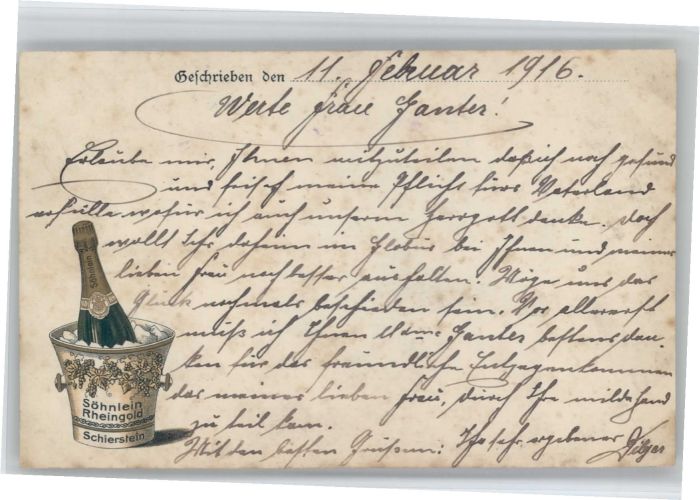 Geschrieben den 11. Februar 1916.
Werte Frau Ganter!
Erlaube mir, Ihnen mitzuteilen daß ich noch gesund
und frisch meine Pflicht fürs Vaterland
erfülle wofür ich auch unserm Herrgott danke. Doch
wollt Ihr daheim im Globus bei Ihnen und meiner
lieben Frau noch besser aushalten. Möge uns das
Glück nochmals beschieden sein. Vor allererst
muß ich Ihnen Madame Ganter bestens dan-
ken für das freundliche Entgegenkommen
das meiner lieben Frau, durch Ihre milde Hand
zu teil kam.
Mit den besten Grüßen: Ihr sehr ergebener
Söhnlein
Söhnlein
Rheingold
Schierstein